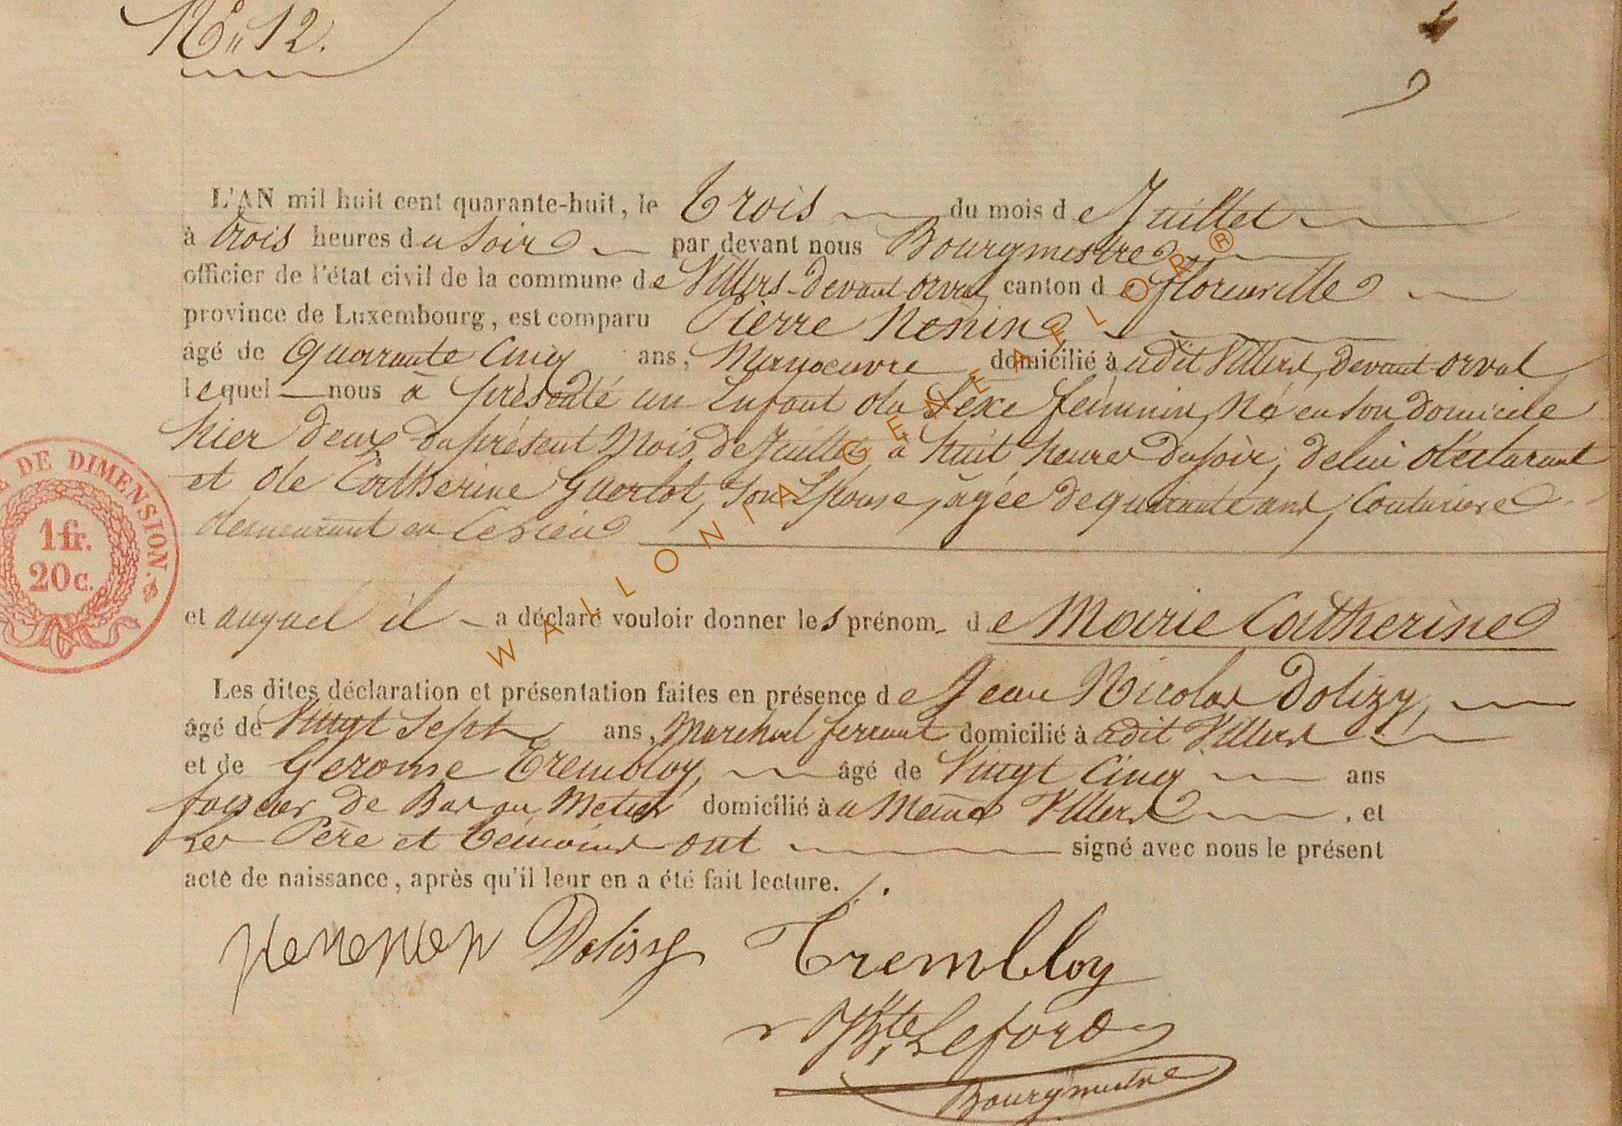 No 12.
L'AN mil huit cent quarante-huit, le trois du mois de Juillet
à trois heures du Soir par devant nous Bourgmestre
officier de l'état civil de la commune de Villers-devant-orval, canton de florenville
province de Luxembourg, est comparu Pierre Nenin
âgé de quarante Cinq ans, Manoeuvre domicilié à udit Villers, devant orval
lequel nous à présenté un Enfant du Sexe féminin, Né en son domicile
hier deux du présent Mois de Juillet, à huit heures du soir, de lui déclarant
et de Catherine Guerlot, son Epouse, agée de quarante ans, Couturiere
demeurant en ce lieu
et auquel il a déclaré vouloir donner les prénom de Marie Catherine
Les dites déclaration et présentation faites en présence de Jean Nicolas Dolizy,
âgé de Vingt Sept ans, Marchal ferrant domicilié à udit Villers
et de Gerome Trembloy, âgé de Vingt Cinq ans
de Bas au Metier domicilié à u Meme Villers, et
Les Père et temoins ont signé avec nous le présent
acte de naissance, après qu'il leur en a été fait lecture.
Dolissy Trembloy
JBte Leford
Bourgmestre
TE DE DIMENSION.
1 fr.
20c.
WALLONIA GENEAFLOR ®